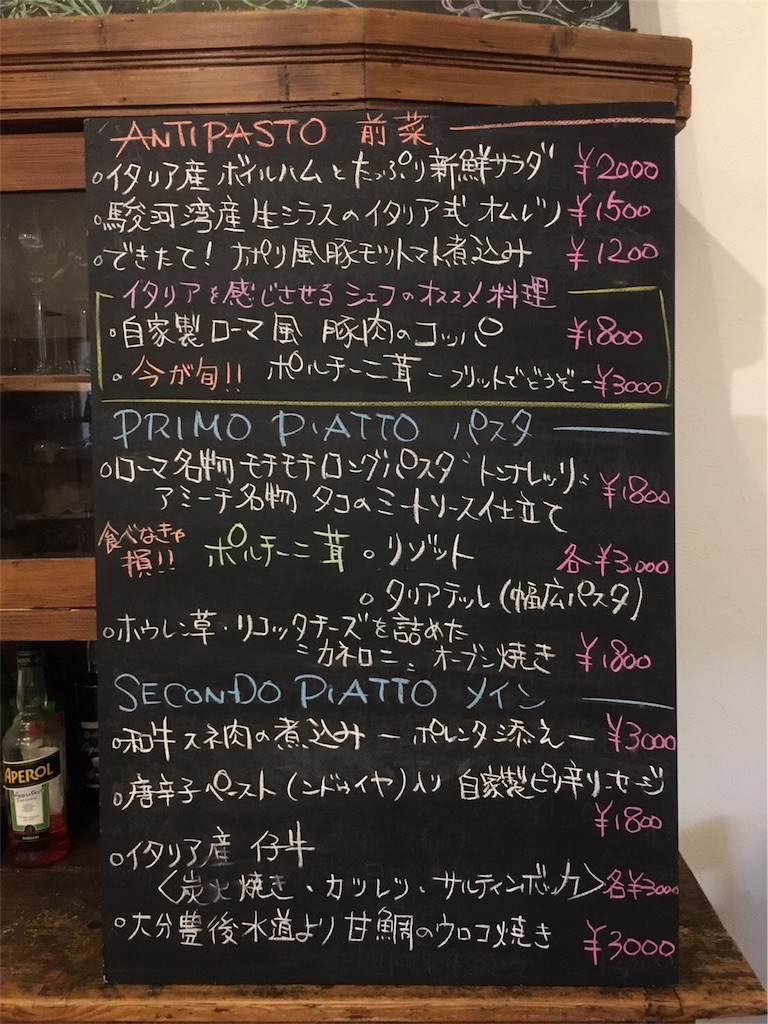 ANTIPASTO 前菜
○イタリア産 ボイルハムとたっぷり新鮮サラダ ¥2000
○駿河湾産生シラスのイタリア式 オムレツ ¥1500
○できたて! ナポリ風豚モツトマト煮込み ¥1200
イタリアを感じさせる シェフのオススメ料理
○自家製ローマ風 豚肉のコッパ ¥1800
○今が旬!! ポルチーニ茸 ーフリットでどうぞー ¥3000
PRIMO PIATTO パスタ
○ローマ名物 モチモチロングパスタ"トンナレッリ"
アミーチ名物 タコのミートソース仕立て ¥1800
食べなきゃ
損!!
ポルチーニ茸 ○リゾット 各¥3000
○タリアテッレ(幅広パスタ)
○ホウレン草・リコッタチーズを詰めた
"カネロニ" オーブン焼き ¥1800
SECONDO PIATTO メイン
○和牛スネ肉の煮込み ー ポレンタ添え ー ¥3000
○唐辛子ペースト(ンドゥイヤ)入り 自家製ピリ辛ソーセージ
¥1800
○イタリア産 仔牛
〈炭火焼き・カツレツ・サルティンボッカ〉各¥3000
○大分豊後水道より甘鯛のウロコ焼き ¥3000
APEROL